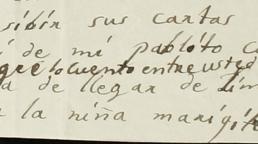 sibir sus cartas
de mi pablito
que lo cuento entre usted
a de llegar de
a la niña marigit